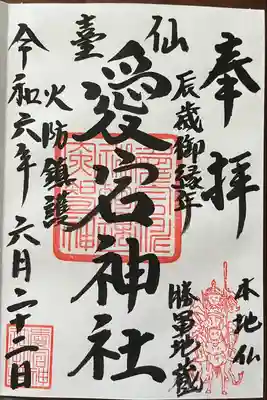 奉拝
本地仏
勝軍地蔵
辰歳御縁年
仙臺
愛宕神社
火防鎮護
令和六年六月二十二日